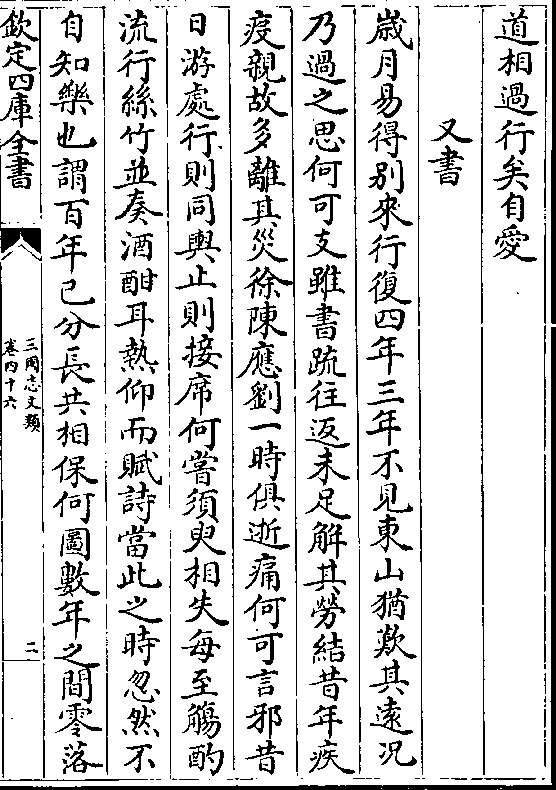 道相過行矣自愛
又書
歲月易得别來行復四年三年不見東山猶歎其遠况
乃過之思何可支雖書䟽往返未足解其勞結昔年疾
疫親故多離其災徐陳應劉一時俱逝痛何可言邪昔
日游處行則同輿止則接席何嘗須臾相失每至觴酌
流行絲竹並奏酒酣耳熱仰而賦詩當此之時忽然不
自知樂也謂百年已分長共相保何圖數年之間零落
欽定四庫全書
三國志文類
卷四十六
二